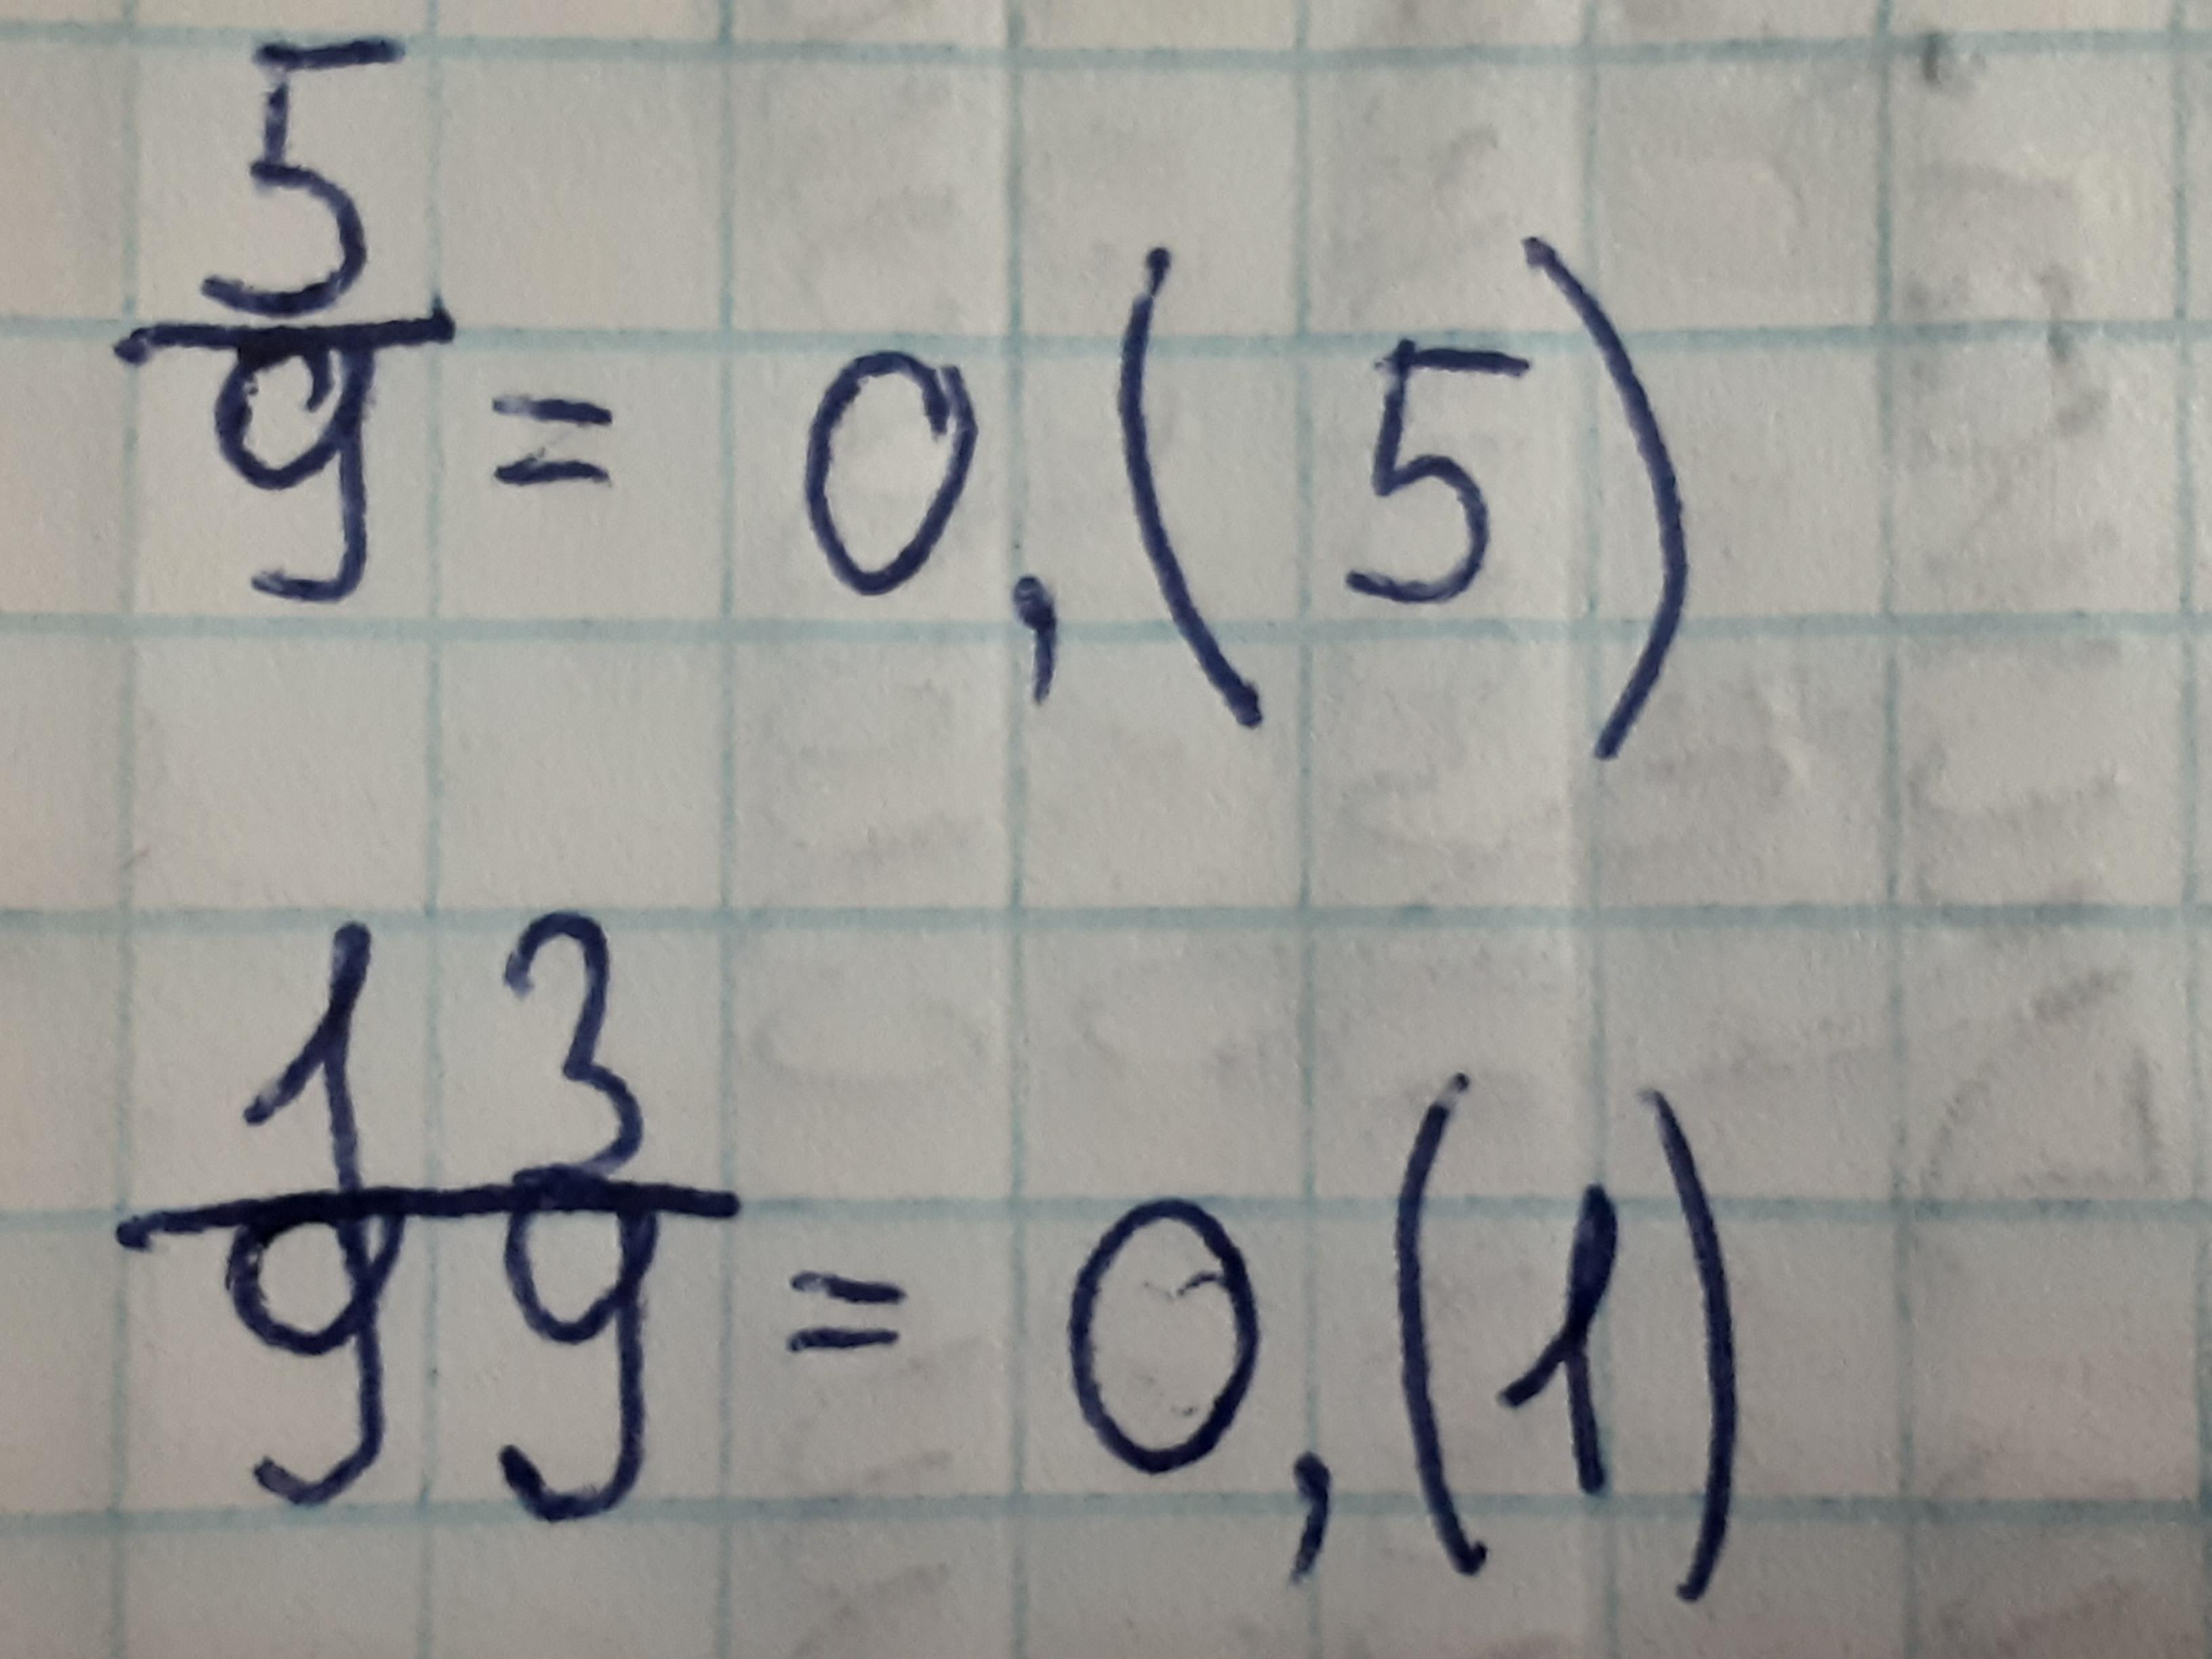 5/9 = 0,(5)
13/99 = 0,(1)